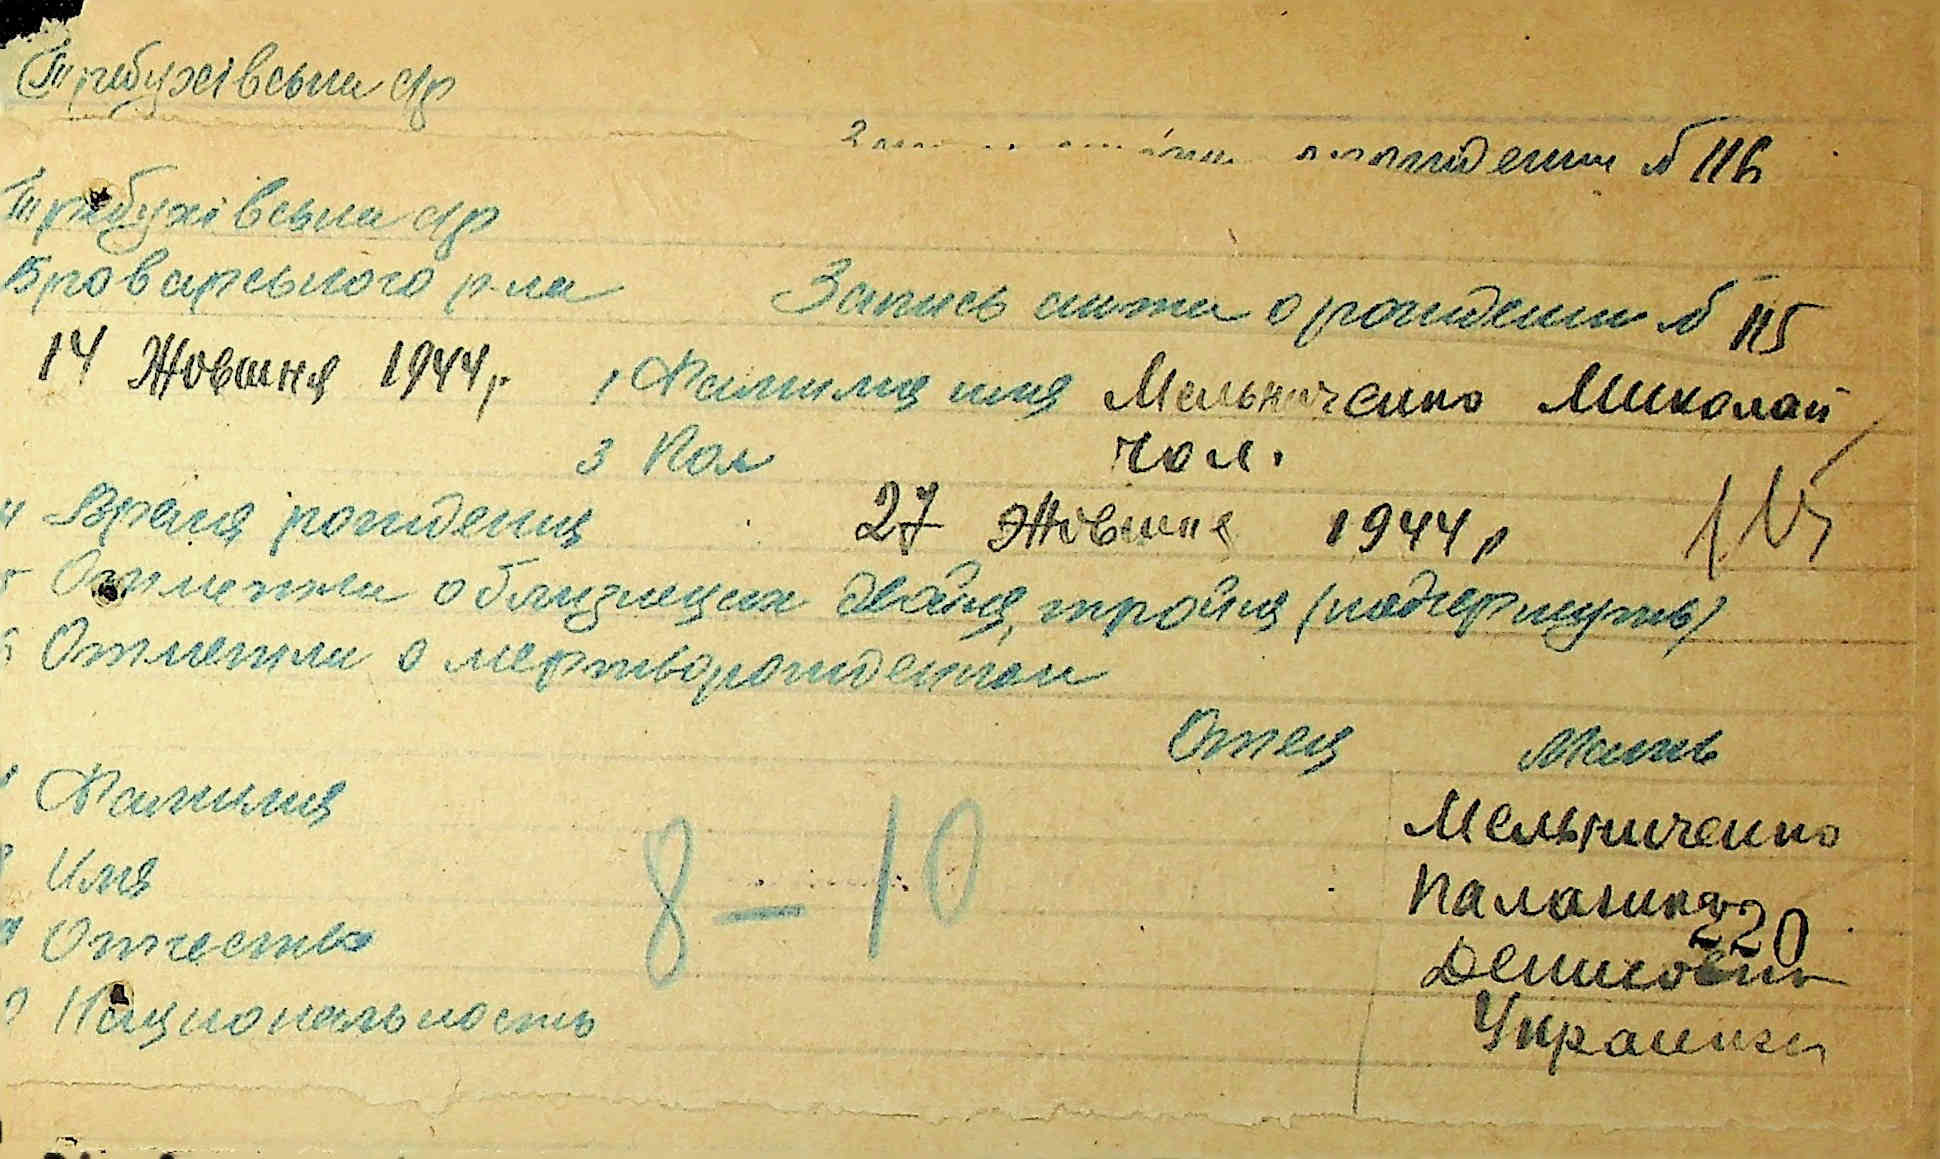 Требухівська с/р
рождении № 116
Требухівська с/р
Броварського р-на Запись акта о рождении № 115
14 Жовтня 1944 р. 1 Фамилия имя Мельниченко Миколай
3 Пол чол.
4 Время рождения 27 Жовтня 1944 р 115
5 Отметка о близнецах двойня, тройня (подчеркнуть)
6 Отметка о мертворожденном
Отец Мать
Фамилия Мельниченко
Имя Палажка
8 – 10 220
Отчество Денисовна
Национальность Украинка